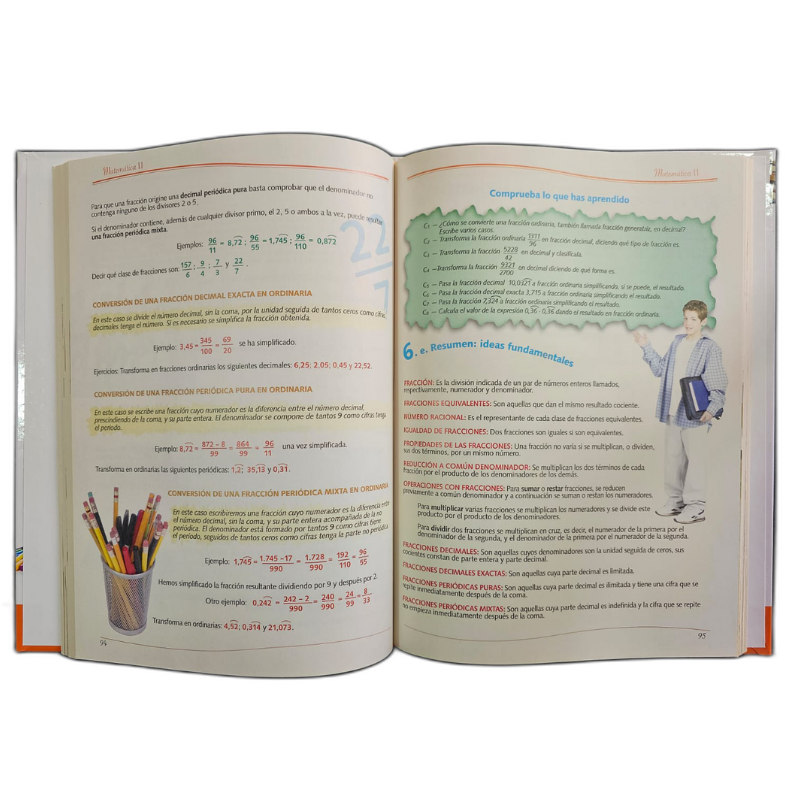 Matemática II
Para que una fracción origine una decimal periódica pura basta comprobar que el denominador no
contenga ninguno de los divisores 2 o 5.
Si el denominador contiene, además de cualquier divisor primo, el 2, 5 o ambos a la vez, puede resultar
una fracción periódica mixta.
Ejemplos: 96/11 = 8,72 ; 96/55 = 1,745 ; 96/110 = 0,872
Decir qué clase de fracciones son 157/6 ; 9/4 ; 7/3 y 22/7 .
22/7
CONVERSIÓN DE UNA FRACCIÓN DECIMAL EXACTA EN ORDINARIA
En este caso se divide el número decimal, sin la coma, por la unidad seguida de tantos ceros como cifras
decimales tenga el número. Si es necesario se simplifica la fracción obtenida.
Ejemplo: 3,45 = 345/100 = 69/20 se ha simplificado.
Ejercicios: Transforma en fracciones ordinarias los siguientes decimales: 6,25; 2,05; 0,45 y 22,52.
CONVERSIÓN DE UNA FRACCIÓN PERIÓDICA PURA EN ORDINARIA
En este caso se escribe una fracción cuyo numerador es la diferencia entre el número decimal,
prescindiendo de la coma, y su parte entera. El denominador se compone de tantos 9 como cifras tenga
el periodo.
Ejemplo: 8,72 = 872 – 8/99 = 864/99 = 96/11 una vez simplificada.
Transforma en ordinarias las siguientes periódicas: 1,2; 35,13 y 0,31.
CONVERSIÓN DE UNA FRACCIÓN PERIÓDICA MIXTA EN ORDINARIA
En este caso escribiremos una fracción cuyo numerador es la diferencia entre
el número decimal, sin la coma, y su parte entera acompañada de la no
periódica. El denominador está formado por tantos 9 como cifras tiene
el periodo, seguidos de tantos ceros como cifras tenga la parte no periódica.
Ejemplo: 1,745 = 1.745 –17/990 = 1.728/990 = 192/110 = 96/55
Hemos simplificado la fracción resultante dividiendo por 9 y después por 2.
Otro ejemplo: 0,242 = 242 – 2/990 = 240/990 = 24/99 = 8/33
Transforma en ordinarias: 4,52; 0,314 y 21,073.
94
Matemática II
Comprueba lo que has aprendido
C1 — ¿Cómo se convierte una fracción ordinaria, también llamada fracción generatriz, en decimal?
Escribe varios casos.
C2 — Transforma la fracción ordinaria en fracción decimal, diciendo qué tipo de fracción es.
C3 — Transforma la fracción 5229/42 en decimal y clasifícala.
C4 —Transforma la fracción 9321/2700 en decimal diciendo de qué forma es.
C5 — Pasa la fracción decimal 10,0321 a fracción ordinaria simplificando, si se puede, el resultado.
C6 — Pasa la fracción decimal exacta 3,715 a fracción ordinaria simplificando el resultado.
C7 — Pasa la fracción 7,324 a fracción ordinaria simplificando el resultado.
C8 — Calcula el valor de la expresión 0,36 · 0,36 dando el resultado en fracción ordinaria.
6. e. Resumen: ideas fundamentales
FRACCIÓN: Es la división indicada de un par de números enteros llamados,
respectivamente, numerador y denominador.
FRACCIONES EQUIVALENTES: Son aquellas que dan el mismo resultado cociente.
NÚMERO RACIONAL: Es el representante de cada clase de fracciones equivalentes.
IGUALDAD DE FRACCIONES: Dos fracciones son iguales si son equivalentes.
PROPIEDADES DE LAS FRACCIONES: Una fracción no varía si se multiplican, o dividen,
sus dos términos, por un mismo número.
REDUCCIÓN A COMÚN DENOMINADOR: Se multiplican los dos términos de cada
fracción por el producto de los denominadores de los demás.
OPERACIONES CON FRACCIONES: Para sumar o restar fracciones, se reducen
previamente a común denominador y a continuación se suman o restan los numeradores.
Para multiplicar varias fracciones se multiplican los numeradores y se divide este
producto por el producto de los denominadores.
Para dividir dos fracciones se multiplican en cruz, es decir, el numerador de la primera por el
denominador de la segunda, y el denominador de la primera por el numerador de la segunda.
FRACCIONES DECIMALES: Son aquellas cuyos denominadores son la unidad seguida de ceros, sus
cocientes constan de parte entera y parte decimal.
FRACCIONES DECIMALES EXACTAS: Son aquellas cuya parte decimal es limitada.
FRACCIONES PERIÓDICAS PURAS: Son aquellas cuya parte decimal es ilimitada y tiene una cifra que se
repite inmediatamente después de la coma.
FRACCIONES PERIÓDICAS MIXTAS: Son aquellas cuya parte decimal es indefinida y la cifra que se repite
no empieza inmediatamente después de la coma.
95